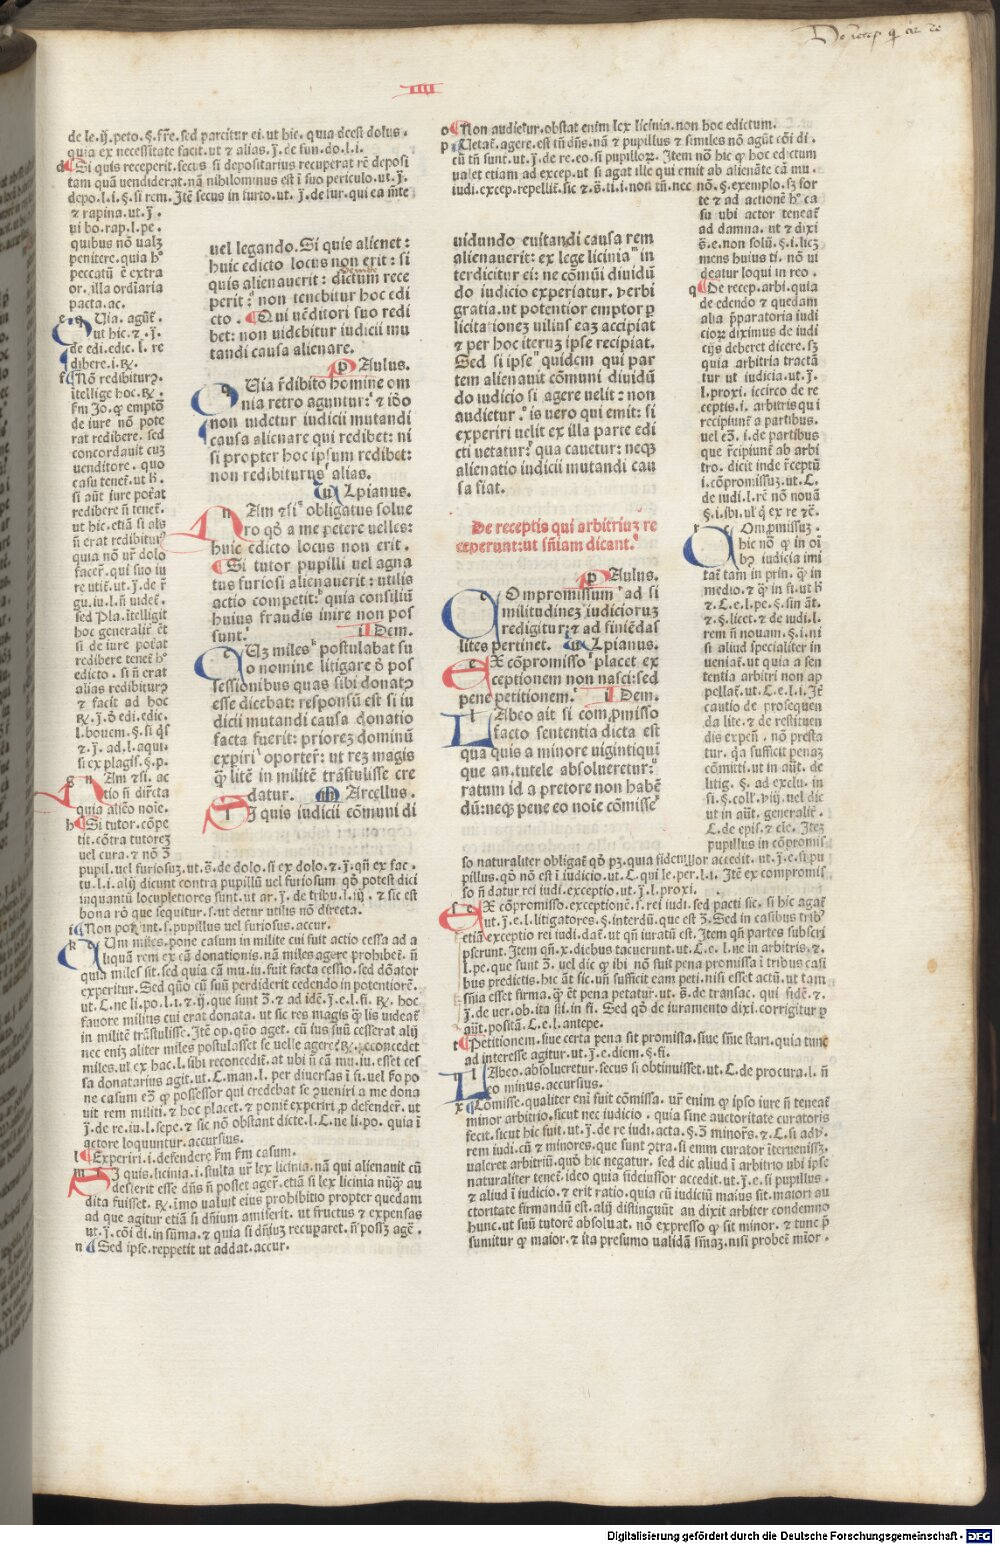 IIII
de le. ij. peto. §. fr̄e. sed parcitur ei. ut hic. quia deest dolus.
quia ex necessitate facit. ut & alias. j̄. de fun. do. l. i.
d Si quis receperit. secus si depositarius recuperat rē deposi
tam quā vendiderat. nā nihilominus est ī suo periculo. ut. j̄.
depo. l. i. §. si rem. Itē secus in furto. ut. j̄. de fur. qui ea mēte
& rapina. ut. j̄.
ui bo. rap. l. pe.
quibus nō ualz
penitere. quia
peccatū ē extra
or. illa ordīaria
pacta. ac.
e Quia. agūt.
ut hic. & . j̄.
de edi. edic. l. re
dibere. i. R̷.
f Nō redibiturꝫ.
ītellige hoc. R̷.
fm Jo. ꝙ emptō
de iure nō pote
rat redibere. sed
concordauit cuꝫ
uenditore. quo
casu tenet. ut h̄.
si aūt iure poterat
redibere n̄ tenet.
ut hic. etiā si als
n̄ erat redibiturꝫ
quia nō ur̄ dolo
facer̄. qui suo iu
re utit. ut. j̄. de r̄
gu. iu. l. n̄ uidet.
sed Pla. ītelligit
hoc generalit̄ et
si de iure potat
redibere tenet h̊
edicto. si n̄ erat
alias redibiturꝫ
& facit ad hoc
R̷. j̄. ō edi. edic.
l. bouem. §. si q̄s
& . j̄. ad. l. aqui.
si ex plagis. §. p.
g Nam & si. ac
tio n̄ dir̄cta
quia aliēo noīe.
h Si tutor. cōpe
tit. cōtra tutoreꝫ
uel cura. & nō ꝫ
pupil. uel furiosuꝫ. ut. s̄. de dolo. si ex dolo. & . j̄. qn̄ ex fac.
tu. l. i. alij dicunt contra pupillū uel furiosum. qō potest dici
inquantū locupletiores sunt. ut ar. j̄. de tribu. l. iij. & sic est
bona rō que sequitur. s. ut detur utilis nō directa.
i Non possunt. s. pupillus uel furiosus. accur.
k Cum miles. pone casum in milite cui fuit actio cessa ad a
liquā rem ex cā donationis. nā miles agere prohibet. n̄
quia miles sit. sed quia cā mu. iu. fuit facta cessio. sed dōator
experitur. Sed quō cū suū perdiderit cedendo in potentiorē.
ut. C. ne li. po. l. i. & ij. que sunt ꝫ. & ad idē. j̄. e. l. fi. R̷. hoc
fauore militis cui erat donata. ut sic res magis q̄ lis uideat
in militē trāstulisse. Itē op. quo aget. cū ius suū cesserat alij
nec eniꝫ aliter miles postulasset se uelle agere. R̷. reconcedet
miles. ul ex hac. l. sibi reconcedit. at ubi n̄ cā mu. iu. esset ces
sa donatarius agit. ut. C. man. l. per diuersas ī fi. uel p̄o po
ne casum eō ꝙ possessor qui credebat se ꝯueniri a me dona
uit rem militi. & hoc placet. & ponit experiri. ꝓ defender̄. ut
j̄. de re. iu. l. sepe. & sic nō obstant dicte. l. C. ne li. po. quia ī
actore loquuntur. accursius.
l Experiri. i. defendere fm fm casum.
m Si quis. licinia. i. stulta ur̄ lex licinia. nā qui alienauit cū
desierit esse dn̄s n̄ posset ager̄. etiā si lex licinia nūq̄ au
dita fuisset. R̷. īmo ualuit eius prohibitio propter quedam
ad que agitur etiā si dn̄ium amiserit. ut fructus & expensas
ut. j̄. cōi di. in sūma. & quia si dn̄iuꝫ recuparet. n̄ possꝫ age.
n Sed ipse. reppetit ut addat. accur.
uel legando. Si quis alienet:
huic edicto locus non erit: si
quis alienauerit: deinde dictum rece
perit: non tenebitur hoc edi
cto. Qui uēditori suo redi
bet: non uidebitur iudicii mu
tandi causa alienare.
pAulus.
Quia r̄dibito homine om
nia retro aguntur: & iō̄o
non uidetur iudicii mutandi
causa alienare qui redibet: ni
si propter hoc ipsum redibet:
non redibiturus alias.
Ulpianus.
Nam & si obligatus solue
ro qō a me petere uelles:
huic edicto locus non erit.
Si tutor pupilli uel agna
tus furiosi alienauerit: utilis
actio competit: quia consiliū
huius fraudis inire non pos
sunt. iDem.
Cuꝫ miles postulabat su
o nomine litigare ō pos
sessionibus quas sibi donatꝫ
esse dicebat: responsū est si iu
dicii mutandi causa donatio
facta fuerit: prioreꝫ dominū
experiri oporter̄: ut reꝫ magis
q̄ litē in militē trāstulisse cre
datur. mArcellus.
Si quis iudicii cōmuni di
o Non audietur. obstat enim lex licinia. non hoc edictum.
p Uetat. agere. est tn̄ dn̄s. nā & pupillus & similes nō agūt cōi di.
cū tn̄ sunt. ut. j̄. de re. eo. si pupilloꝝ. Item nō hic ꝙ hoc edictum
ualet etiam ad excep. ut si agat ille qui emit ab alienāte cā mu.
iudi. excep. repellit. sic & s̄. ti. i. non tn̄. nec nō. §. exemplo. sꝫ for
te & ad actionē h̊ ca
su ubi actor teneat
ad damna. ut & dixi
s̄. e. non solū. §. i. licꝫ
mens huius ti. nō ui
deatur loqui in reo.
q De recep. arbi. quia
de edendo & quedam
alia p̄paratoria iudi
cioꝝ diximus de iudi
cijs deberet dicere. sꝫ
quia arbitria tractā
tur ut iudicia. ut. j̄.
l. proxi. iccirco de re
ceptis. i. arbitris qui
recipiunt a partibus.
uel eō. i. de partibus
que r̄cipiunt ab arbi
tro. dicit inde r̄ceptū
i. cōpromissuꝫ. ut. C.
de iudi. l. rē nō nouā
§. i. ibi. ul q̄ ex re &c̄.
r Compromissuꝫ.
hic nō ꝙ in oī
bꝫ iudicia imi
tat tam in prin. q̄ in
medio. & q̄ in fi. ut h̄
& . C. e. l. pe. §. sin āt.
& . §. licet. & de iudi. l.
rem n̄ nouam. §. i. ni
si aliud specialiter in
ueniat. ut quia a sen
tentia arbitri non ap
pellat. ut. C. e. l. i. Itē
cautio de prosequen
da lite. & de restituen
dis expeñ. nō presta
tur. q̄a sufficit penaꝫ
cōmitti. ut in aūt. de
litig. §. ad exclu. in
fi. §. coll. viij. uel dic
ut in aūt. generalit̄.
C. de epis. & cle. Iteꝫ
pupillus in cōpromis
so naturaliter obligat qō pꝫ. quia fideiussor accedit. ut. j̄. e. si pu
pillus. qō nō est ī iudicio. ut. C. qui le. per. l. i. Itē ex compromis
so n̄ datur rei iudi. exceptio. ut. j̄. l. proxi.
s Ex cōpromisso. exceptionē. s. rei iudi. sed pacti sic. si hic agat
ut. j̄. e. l. litigatores. §. interdū. que est ꝫ. Sed in casibus tribꝫ
etiā exceptio rei iudi. dat. ut qn̄ iuratū est. Item qn̄ partes subscri
pserunt. Item qn̄. x. diebus tacuerunt. ut. C. e. l. ne in arbitris. & .
l. pe. que sunt ꝫ. uel dic ꝙ ibi nō fuit pena promissa ī tribus casi
bus predictis. hic āt sic. un̄ sufficit eam peti. nisi esset actū. ut tam
sn̄ia esset firma. q̄ et pena petatur. ut. s̄. de transac. qui fidē. & .
j̄. de uer. ob. ita sti. in fi. Sed qō de iuramento dixi. corrigitur ꝑ
aūt. positā. C. e. l. antepe.
t Petitionem. siue certa pena sit promissa. siue sn̄ie stari. quia tunc
ad interesse agitur. ut. j̄. e. diem. §. fi.
u Labeo. absolueretur. secus si obtinuisset. ut. C. de procura. l. n̄
eo minus. accursius.
x Comisse. qualiter eni fuit cōmissa. ur̄ enim ꝙ ipso iure n̄ teneat
minor arbitrio. sicut nec iudicio. quia sine auctoritate curatoris
fecit. sicut hic fuit. ut. j̄. de re iudi. acta. §. ꝫ minor̄s. & . C. si adꝟ.
rem iudi. cū & minores. que sunt ꝯtra. si enim curator īteruenissꝫ.
ualeret arbitriū. quō hic negatur. sed dic aliud ī arbitrio ubi ipse
naturaliter tenet. ideo quia fideiussor accedit. ut. j̄. e. si pupillus.
& aliud ī iudicio. & erit ratio. quia cū iudiciū maius sit. maiori au
ctoritate firmandū est. alij distinguūt an dixit arbiter condemno
hunc. ut suū tutorē absoluat. nō expresso ꝙ sit minor. & tunc p̄
sumitur ꝙ maior. & ita presumo ualidā sn̄iaꝫ. nisi probet mīor.
uidundo euitandi causa rem
alienauerit: ex lege licinia in
terdicitur ei: ne cōmūi diuidū
do iudicio experiatur. verbi
gratia. ut potentior emptor ꝑ
licitationeꝫ uilius eaꝫ accipiat
& per hoc iteruꝫ ipse recipiat.
Sed si ipse quidem qui par
tem alienauit cōmuni diuidū
do iudicio si agere uelit: non
audietur. is uero qui emit: si
experiri uelit ex illa parte edi
cti uetatur: qua cauetur: neqꝫ
alienatio iudicii mutandi cau
sa fiat.
De receptis qui arbitriuꝫ re
ceperunt: ut sn̄iam dicant.
pAulus.
Compromissum ad si
militudineꝫ iudicioruꝫ
redigitur: & ad finiēdas
lites pertinet. Ulpianus.
Ex cōpromisso placet ex
ceptionem non nasci: sed
pene petitionem. iDem.
Labeo ait si com,pmisso
facto sententia dicta est
qua quis a minore uigintiqui
que an. tutele absolueretur:
ratum id a pretore non habē
dū: neqꝫ pene eo noīe cōmisse
Digitalisierung gefördert durch die Deutsche Forschungsgemeinschaft - DFG